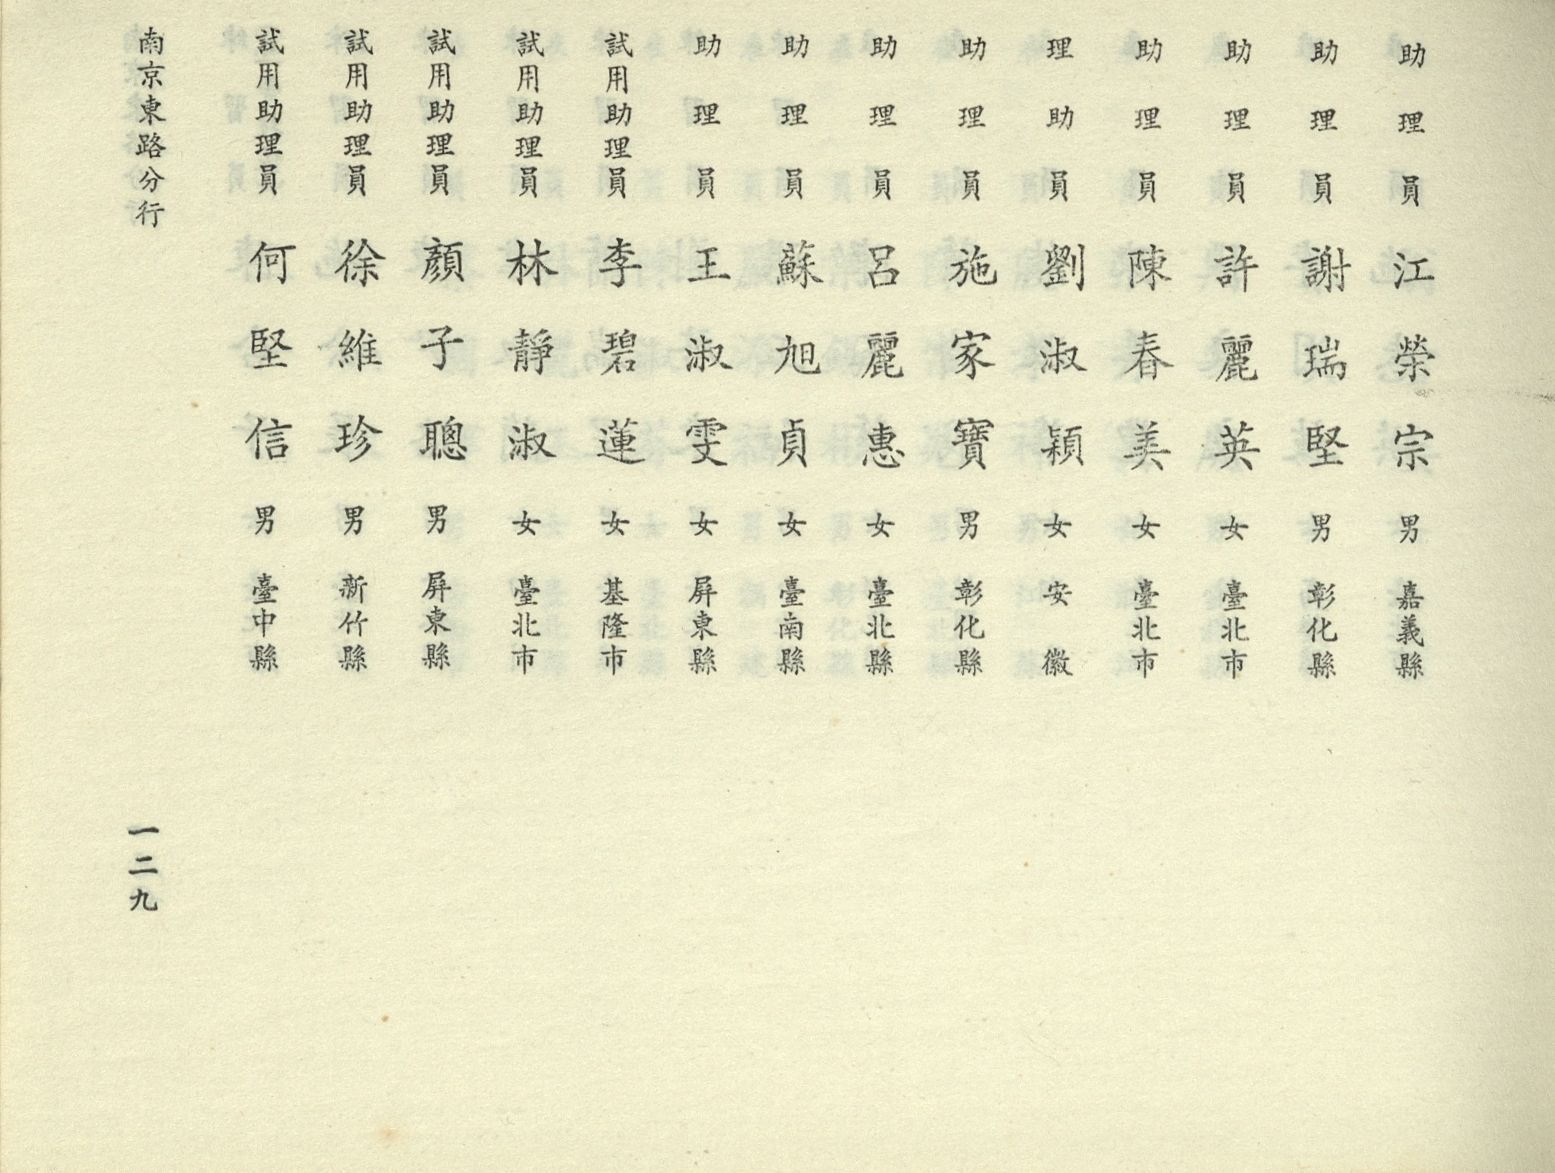 助理員 江榮宗 男 嘉義縣
助理員 謝瑞堅 男 彰化縣
助理員 許麗英 女 臺北市
助理員 陳春美 女 臺北市
理助員 劉淑穎 女 安徽
助理員 施家寶 男 彰化縣
助理員 呂麗惠 女 臺北縣
助理員 蘇旭貞 女 臺南縣
助理員 王淑雯 女 屏東縣
試用助理員 李碧蓮 女 基隆市
試用助理員 林靜淑 女 臺北市
試用助理員 顏子聰 男 屏東縣
試用助理員 徐維珍 男 新竹縣
試用助理員 何堅信 男 臺中縣
南京東路分行
一二九